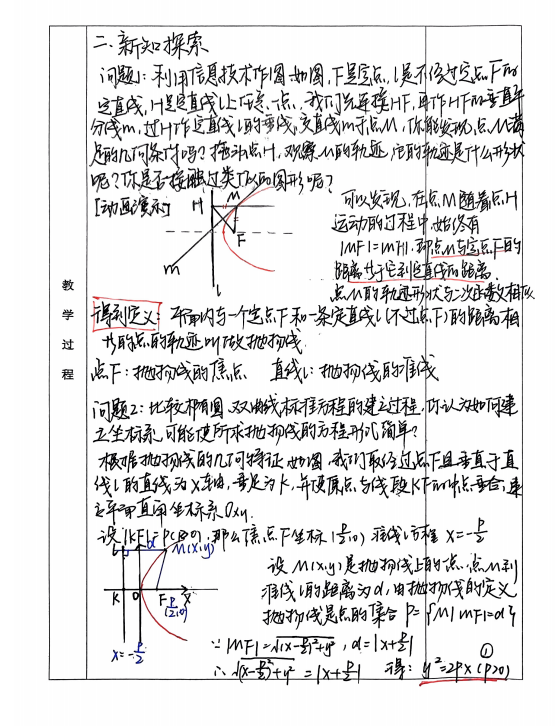 二. 新知探索
问题1: 利用信息技术作图.如图,F是定点,l是不经过定点F的
定直线,H是定直线l上任意一点,我们先连接HF,再作HF的垂直平
分线m,过H作定直线l的垂线,交直线m于点M,你能发现点M满
足的几何条件吗?拖动点H,观察M的轨迹,它的轨迹是什么形状
呢?你是否接触过类似的图形呢?
[动画演示]
H
M
F
m
l
可以发现,在点M随着点H
运动的过程中,始终有
|MF|=|MH|,即点M与定点F的
距离等于它到定直线l的距离.
点M的轨迹形状与二次函数相似
教学过程
得到定义: 平面内与一个定点F和一条定直线l(不过点F)的距离相
等的点的轨迹叫做抛物线.
点F:抛物线的焦点 直线l:抛物线的准线
问题2:比较椭圆、双曲线标准方程的建立过程,你认为如何建
立坐标系,可能使所求抛物线的方程形式简单?
根据抛物线的几何特征,如图,我们取经过点F且垂直于直
线l的直线为x轴,垂足为K,并使原点与线段KF的中点重合,建
立平面直角坐标系Oxy.
设|KF|=P(P>0),那么焦点F坐标(P/2,0) 准线l方程 x=-P/2
d
M(x,y)
K
O
F
(P/2,0)
X
x=-P/2
设M(x,y)是抛物线上的一点,点M到
准线l的距离为d,由抛物线的定义
抛物线是点的集合 P={M||MF|=d}
∵|MF|=√(x-P/2)²+y², d=|x+P/2|
∴√(x-P/2)²+y²=|x+P/2| 得: y²=2Px(P>0) ①